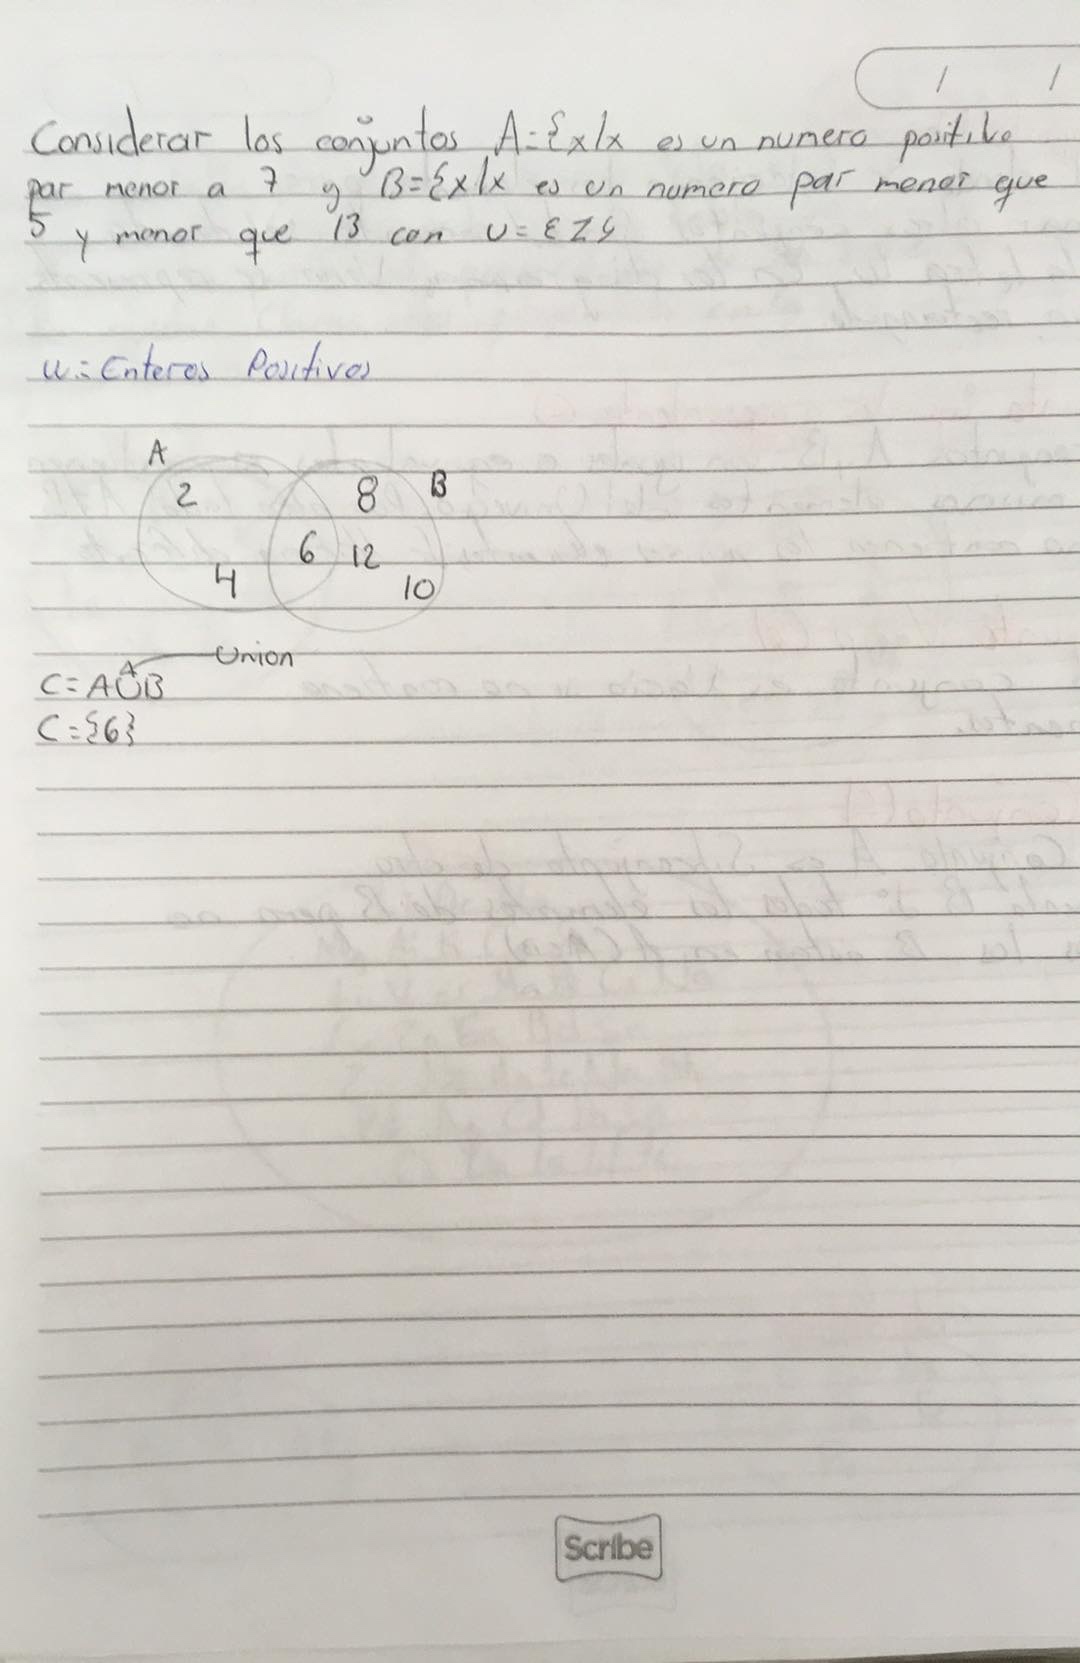 Considerar los conjuntos A={x/x es un numero positivo
par menor a 7 y B={x/x es un numero par menor que
5 y menor que 13 con U={Z}
U= Enteros Positivos
A
2
8
B
6
12
4
10
Union
C=A∪B
C={6}
Scribe